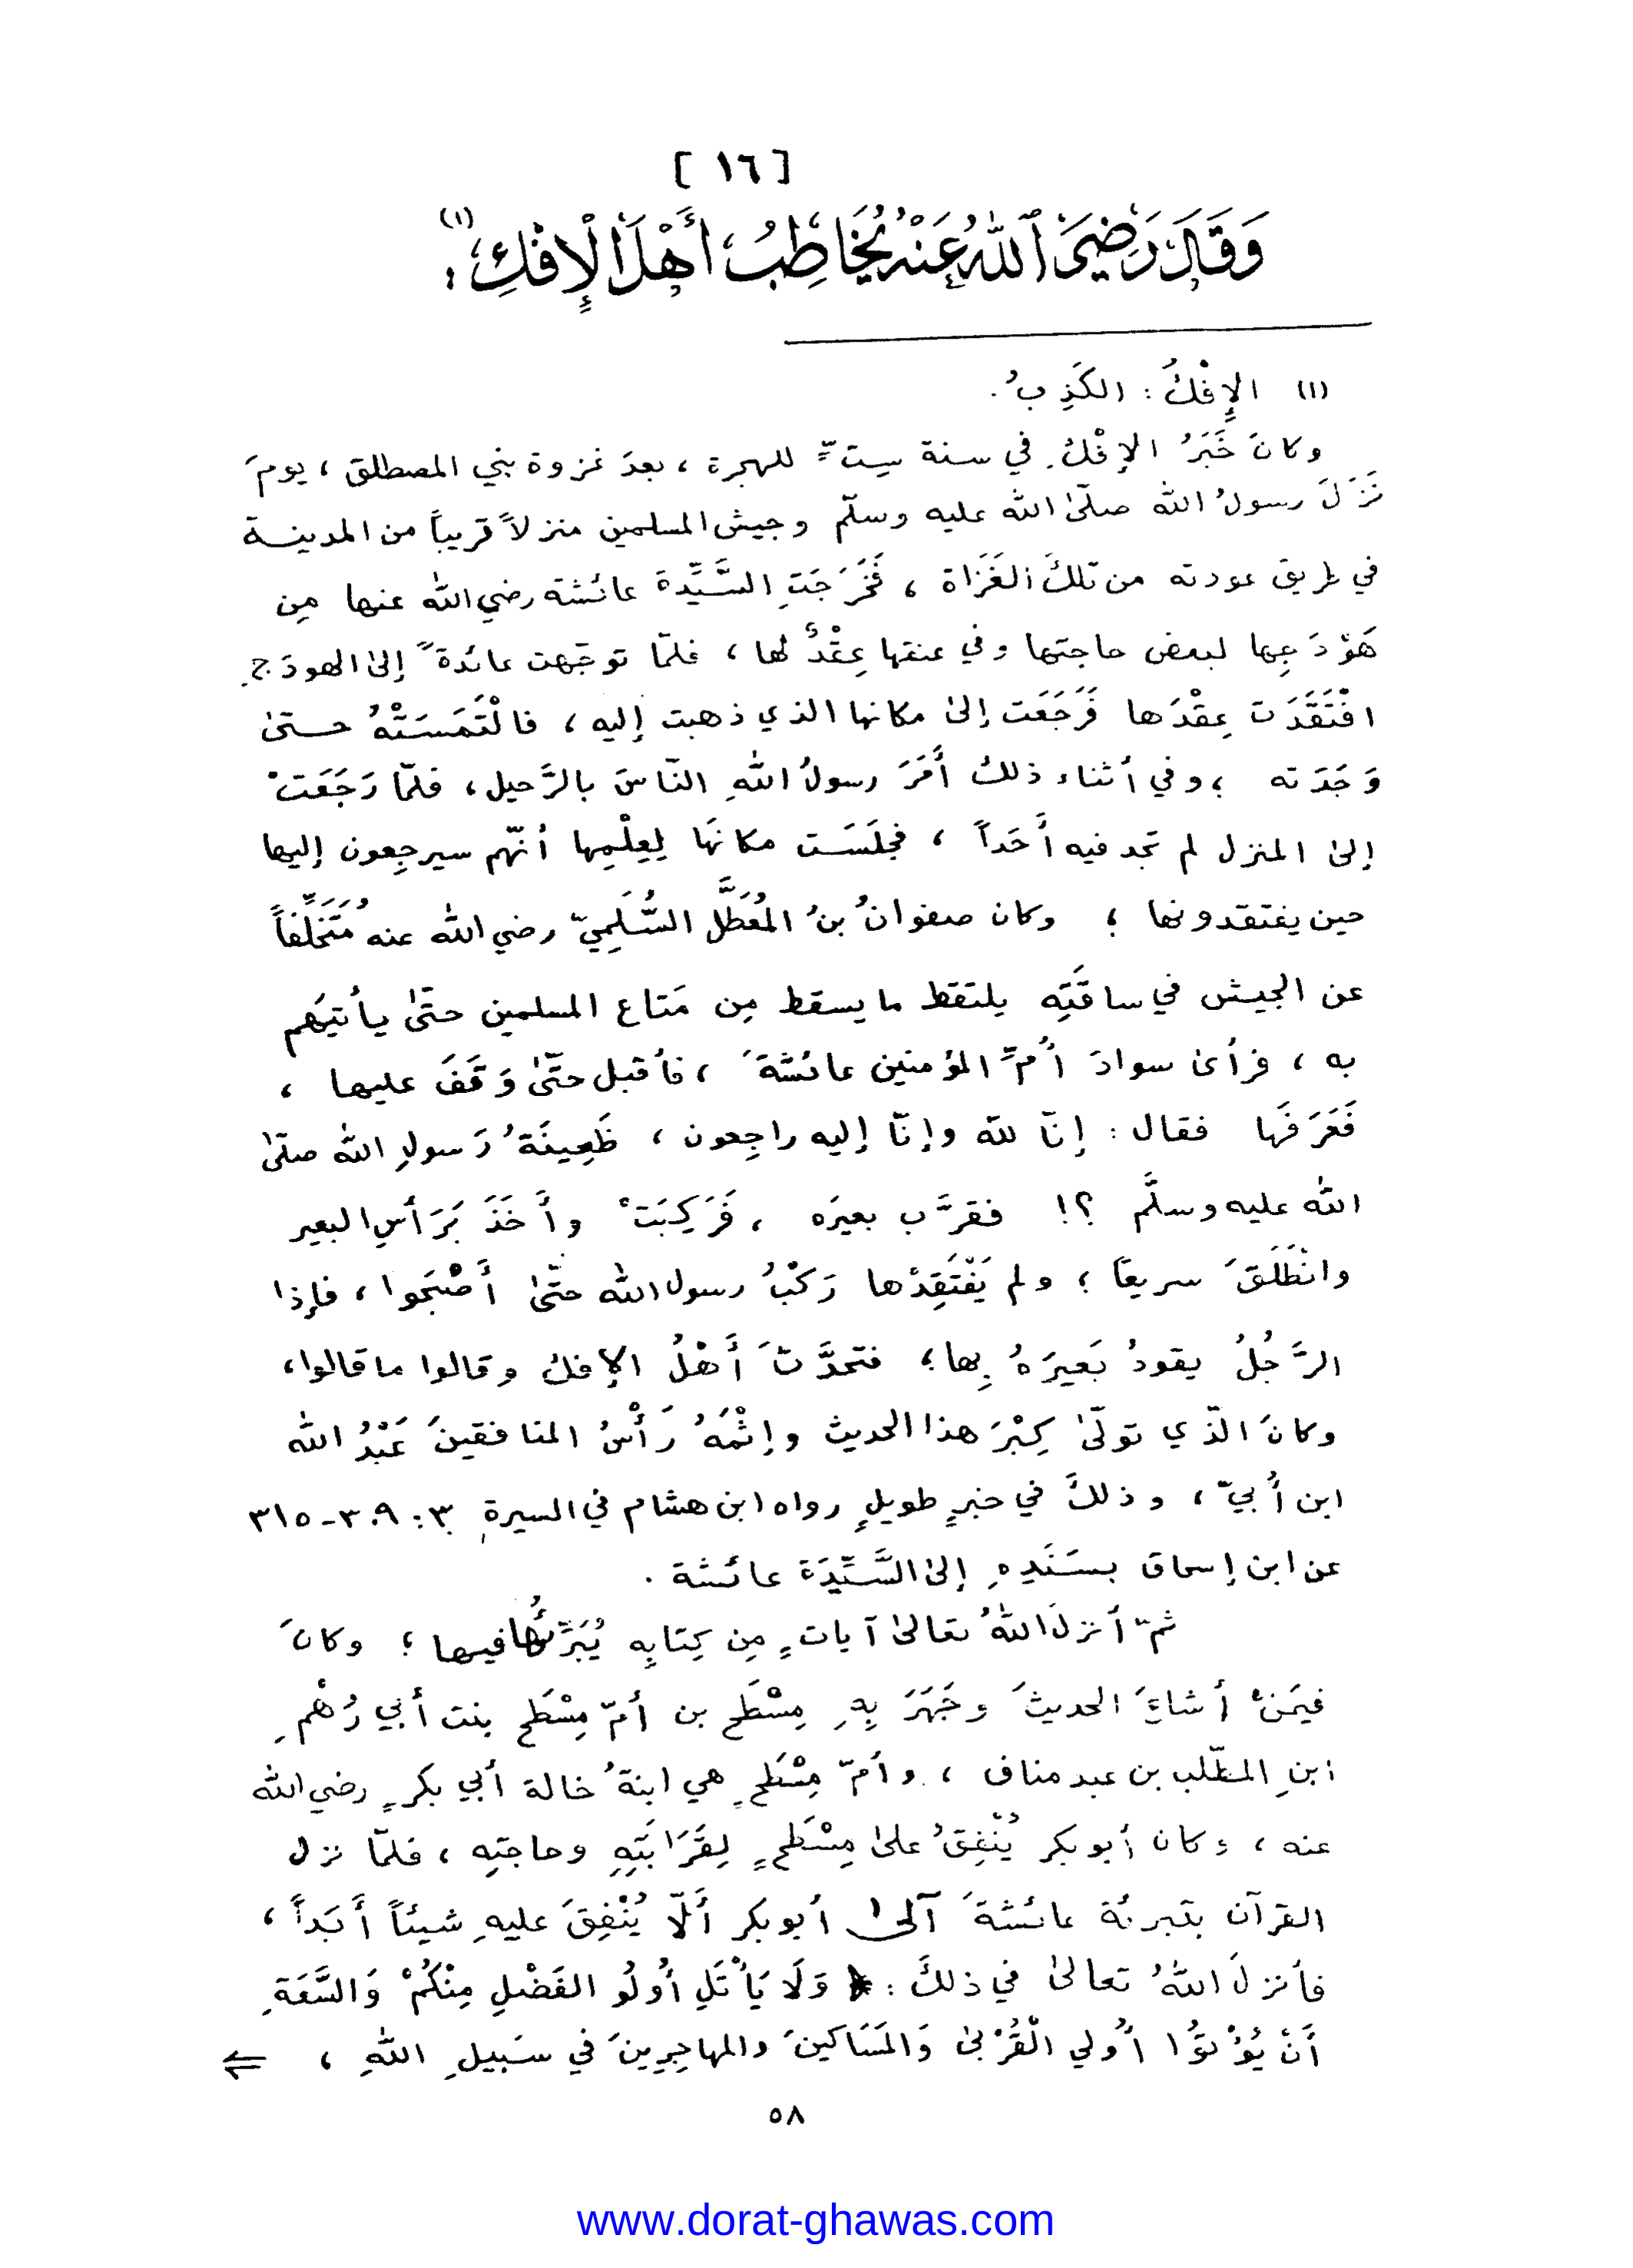 [ ١٦ ]
وَقَالَ رَضِيَ ٱللهُ عَنْهُ يُخَاطِبُ أَهْلَ الْإِفْكِ (١) :
(١) الإِفْكُ : الكَذِبُ .
وكانَ خَبَرُ الإفْكِ في سنة سِتٍّ للهجرة ، بعدَ غزوة بني المصطلق ، يومَ
نَزَلَ رسولُ الله صلّىٰ الله عليه وسلّم وجيش المسلمين منزلاً قريباً من المدينة
في طريق عودته من تلكَ الغَزَاة ، فَخَرَجَتِ السَّيِّدةَ عائشة رضي الله عنها مِن
هَوْدَجِها لبعض حاجتها وفي عنقها عِقْدٌ لها ، فلمّا توجّهت عائدةً إلىٰ الهودَجِ
افْتَقَدَت عِقْدَها فَرَجَعَت إلىٰ مكانها الذي ذهبت إليه ، فالْتَمَسَتْهُ حتىٰ
وَجَدَته ؛ وفي أثناء ذلك أَمَرَ رسولُ اللهِ النّاسَ بالرَّحيل ، فلمّا رَجَعَتْ
إلىٰ المنزل لم تجد فيه أَحَداً ، فجلَسَت مكانَها لِعِلْمِها أنّهم سيرجِعون إليها
حين يفتقدونها ؛ وكان صفوانُ بنُ المُعَطَّل السُّلَمِيّ رضي الله عنه مُتَخَلِّفاً
عن الجيش في ساقَتِه يلتقط ما يسقط مِن مَتاع المسلمين حتّىٰ يأتيَهم
به ، فرأىٰ سوادَ أُمِّ المؤمنين عائشةَ ، فأقبل حتّىٰ وَقَفَ عليها ،
فَعَرَفَها فقال : إنّا لله وإنّا إليه راجِعون ، ظَعِينَةُ رَسولِ الله صلّىٰ
الله عليه وسلَّم ؟! فقرَّب بعيرَه ، فَرَكِبَتْ وأَخَذَ بَرَأسِ البعير
وانْطَلَقَ سريعاً ؛ ولم يَفْتَقِدْها رَكْبُ رسول الله حتّىٰ أَصْبَحوا ، فإذا
الرَّجُلُ يقودُ بَعيرَهُ بِها ؛ فتحدَّثَ أَهْلُ الإفك وقالوا ما قالوا ،
وكانَ الّذي تولّىٰ كِبْرَ هذا الحديث وإثْمَهُ رَأْسُ المنافقينَ عَبْدُ الله
ابن أُبيّ ، وذلكَ في خبرٍ طويلٍ رواه ابن هشام في السيرةِ ٣ : ٣٠٩ - ٣١٥
عن ابن إسحاق بسَنَدِهِ إلىٰ السَّيِّدَة عائشة .
ثمّ أنزلَ اللهُ تعالىٰ آياتٍ مِن كِتابِه يُبَرِّئُها فيها ؛ وكانَ
فيمَنْ أشاعَ الحديثَ وجَهَرَ بِهِ مِسْطَح بن أمّ مِسْطَح بنت أبي رُهْمِ
ابنِ المطّلب بن عبد مناف ، وأمّ مِسْطَحٍ هي ابنةُ خالة أبي بكرٍ رضي الله
عنه ، وكان أبو بكر يُنْفِقُ علىٰ مِسْطَحٍ لِقَرَابَتِهِ وحاجتِه ، فلمّا نزل
القرآن بتبرئة عائشةَ آلىٰ أبو بكر أَلّا يُنْفِقَ عليهِ شيئاً أَبَداً ،
فأنزلَ اللهُ تعالىٰ في ذلكَ : ﴿ وَلَا يَأْتَلِ أُولُو الفَضْلِ مِنْكُمْ وَالسَّعَةِ
أَنْ يُؤْتُوا أُولي الْقُرْبىٰ وَالمَسَاكينَ والمهاجِرِينَ في سَبيلِ اللهِ ، ⇐
٥٨
www.dorat-ghawas.com